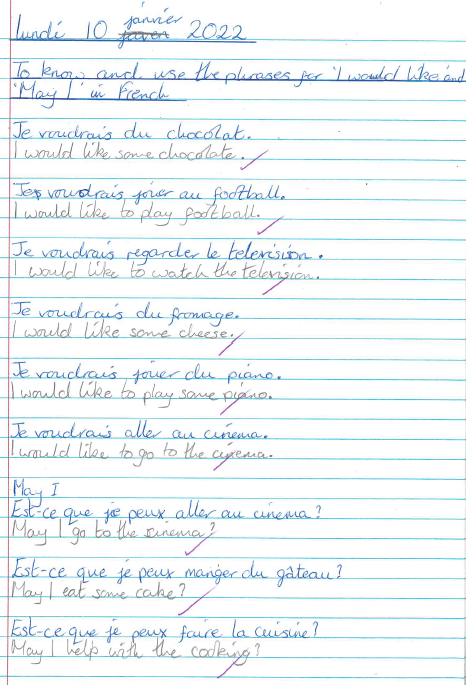 lundi 10 janvier 2022
To know and use the phrases for 'I would like' and
'May I' in French
Je voudrais du chocolat.
I would like some chocolate.
Je voudrais jouer au football.
I would like to play football.
Je voudrais regarder le television.
I would like to watch the television.
Je voudrais du fromage.
I would like some cheese.
Je voudrais jouer du piano.
I would like to play some piano.
Je voudrais aller au cinema.
I would like to go to the cinema.
May I
Est-ce que je peux aller au cinema?
May I go to the cinema?
Est-ce que je peux manger du gâteau?
May I eat some cake?
Est-ce que je peux faire la cuisine?
May I help with the cooking?